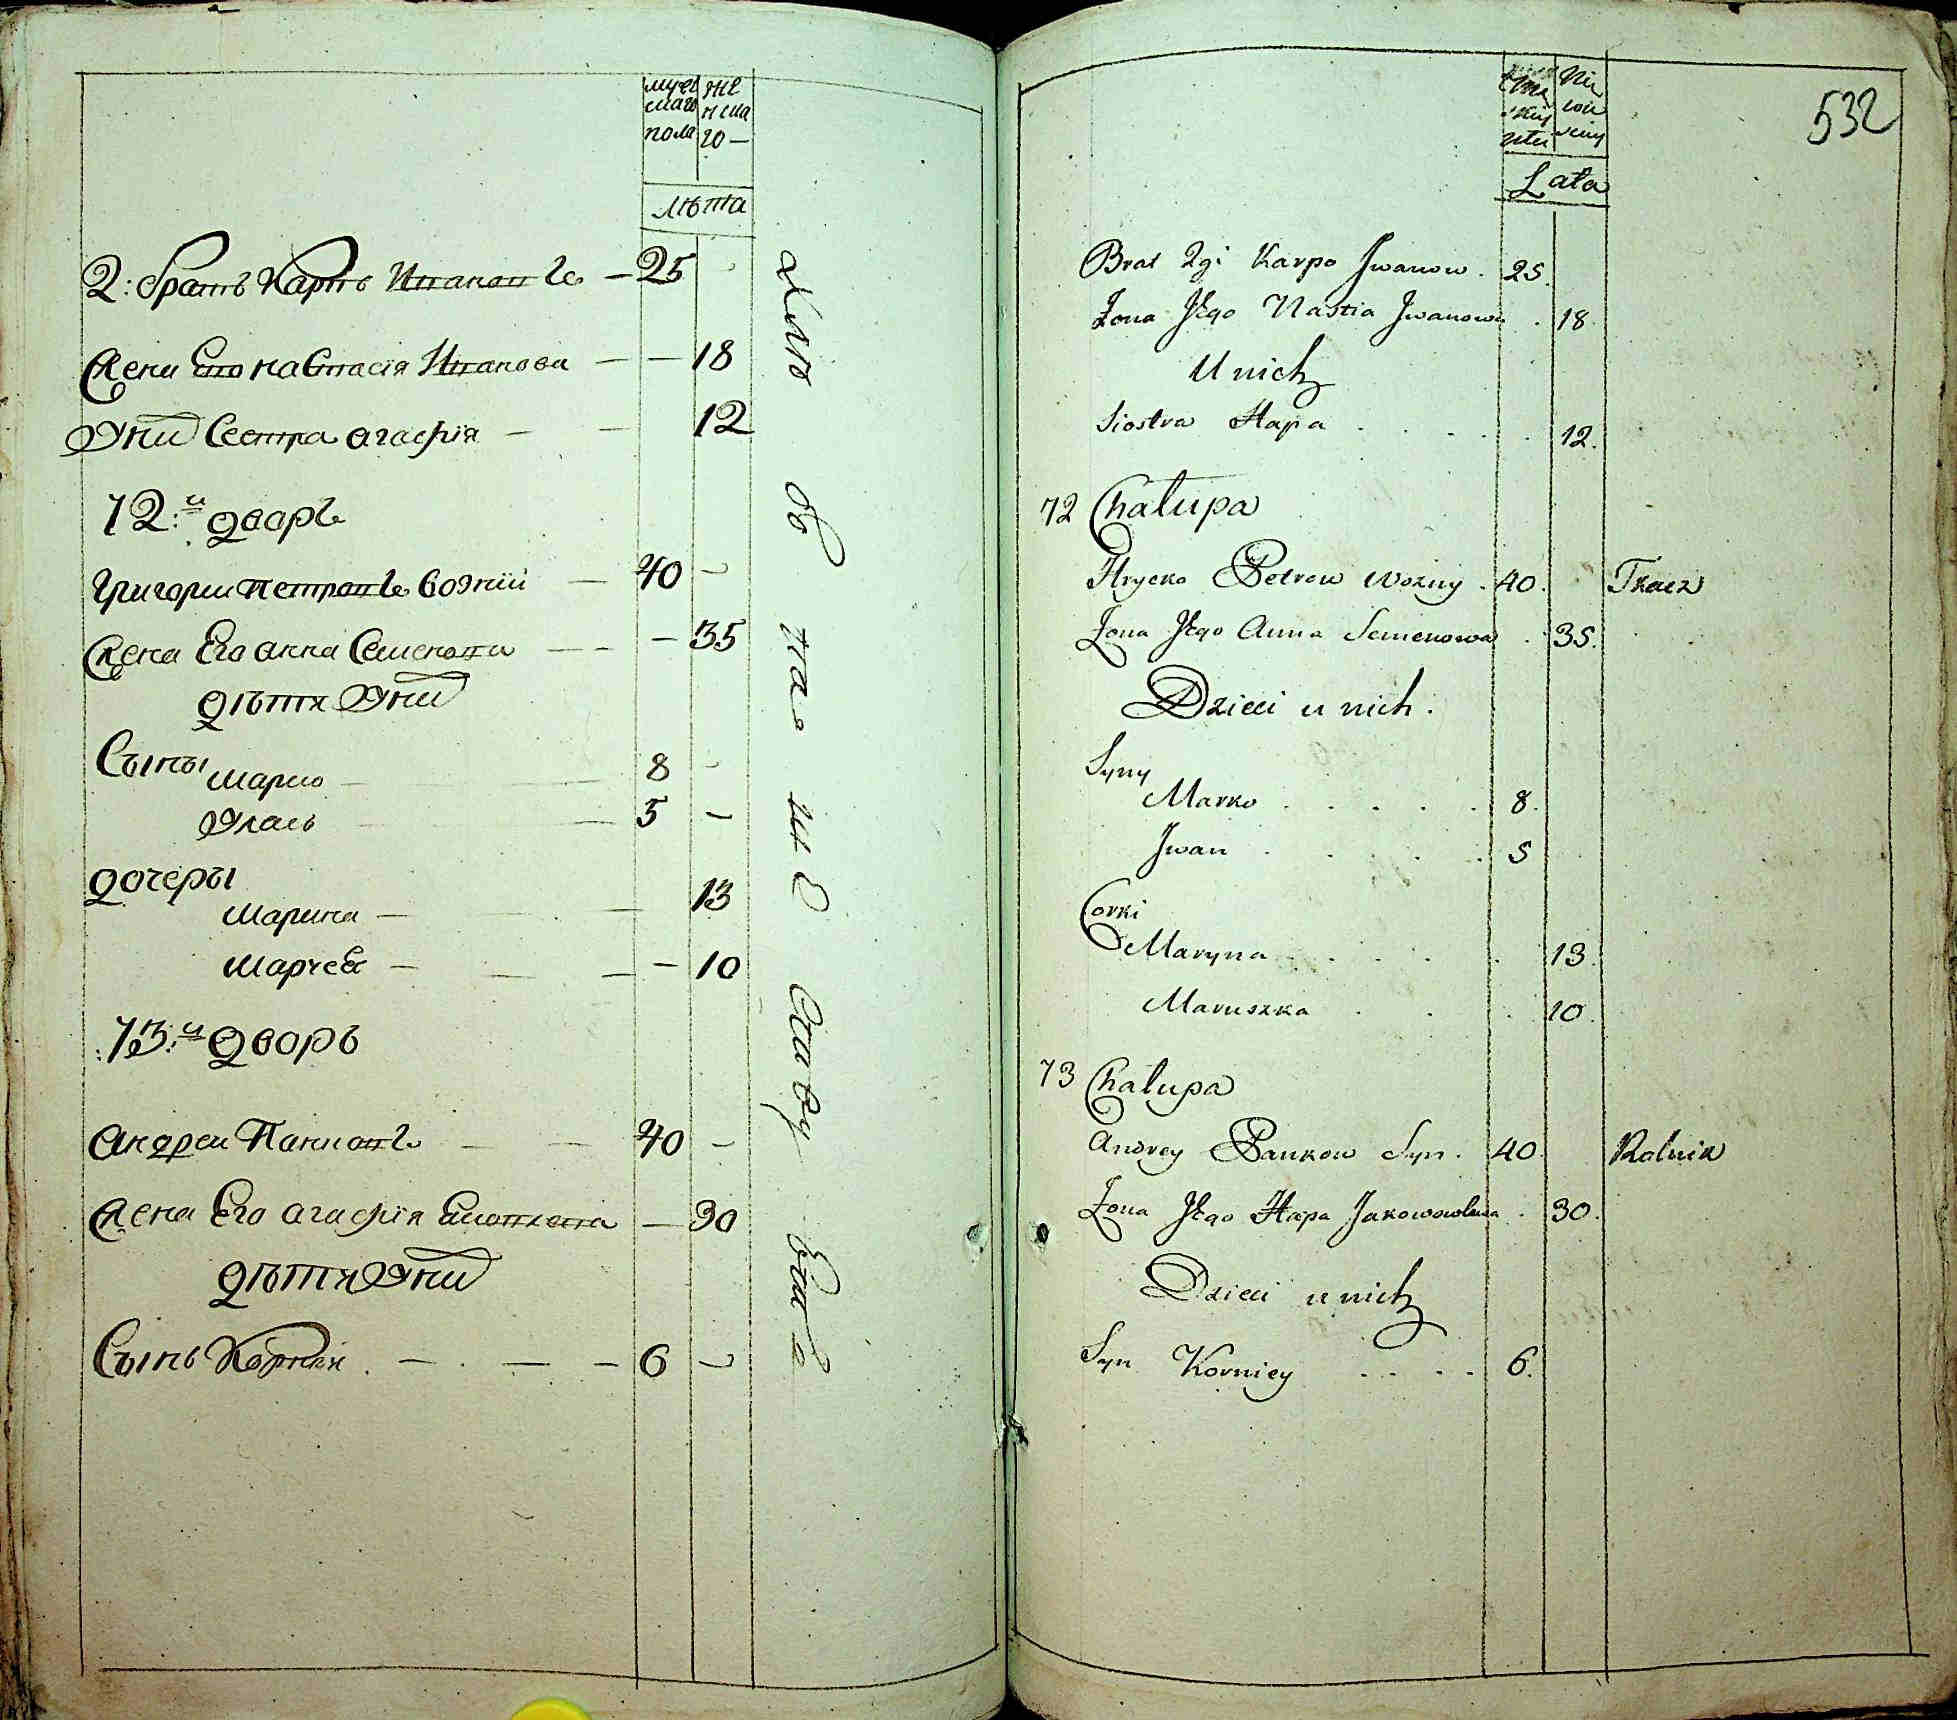 мужескаго пола
женскаго —
лѣта
2: братъ Карпъ Ивановъ — 25
Жена Его настасія Иванова — — 18
У нихъ Сестра агафія — — 12
72:й дворъ
Григорий Петровъ возний — 40 —
Жена Его анна Семенова — — — 35
дѣти У нихъ
Сыны
марко — 8 —
Улась — 5 —
дочеры
марина — 13
марчева — — 10
73:й дворъ
андреи Панковъ — — 40 —
Жена Его агафія — 30
дѣти У нихъ
Сынъ Корнѣй — — — 6 —
532
Lata
Brat 2gi Karpo Jwanow . 25.
Zona Jego Nastia Jwanowa . 18.
U nich
Siostra Hapa . . . . . 12.
72 Chałupa
Hrycko Petrow Wozny . 40. Tkacz
Zona Jego Anna Semenowa . 35.
Dzieci u nich.
Syny
Marko . . . . . 8.
Jwan . . . . . 5
Corki
Maryna . . . . . 13.
Maruszka . . . 10.
73 Chałupa
Andrey Pankow Syn. 40. Rolnik
Zona Jego Hapa . 30.
Dzieci u nich
Syn Korniey . . . . 6.